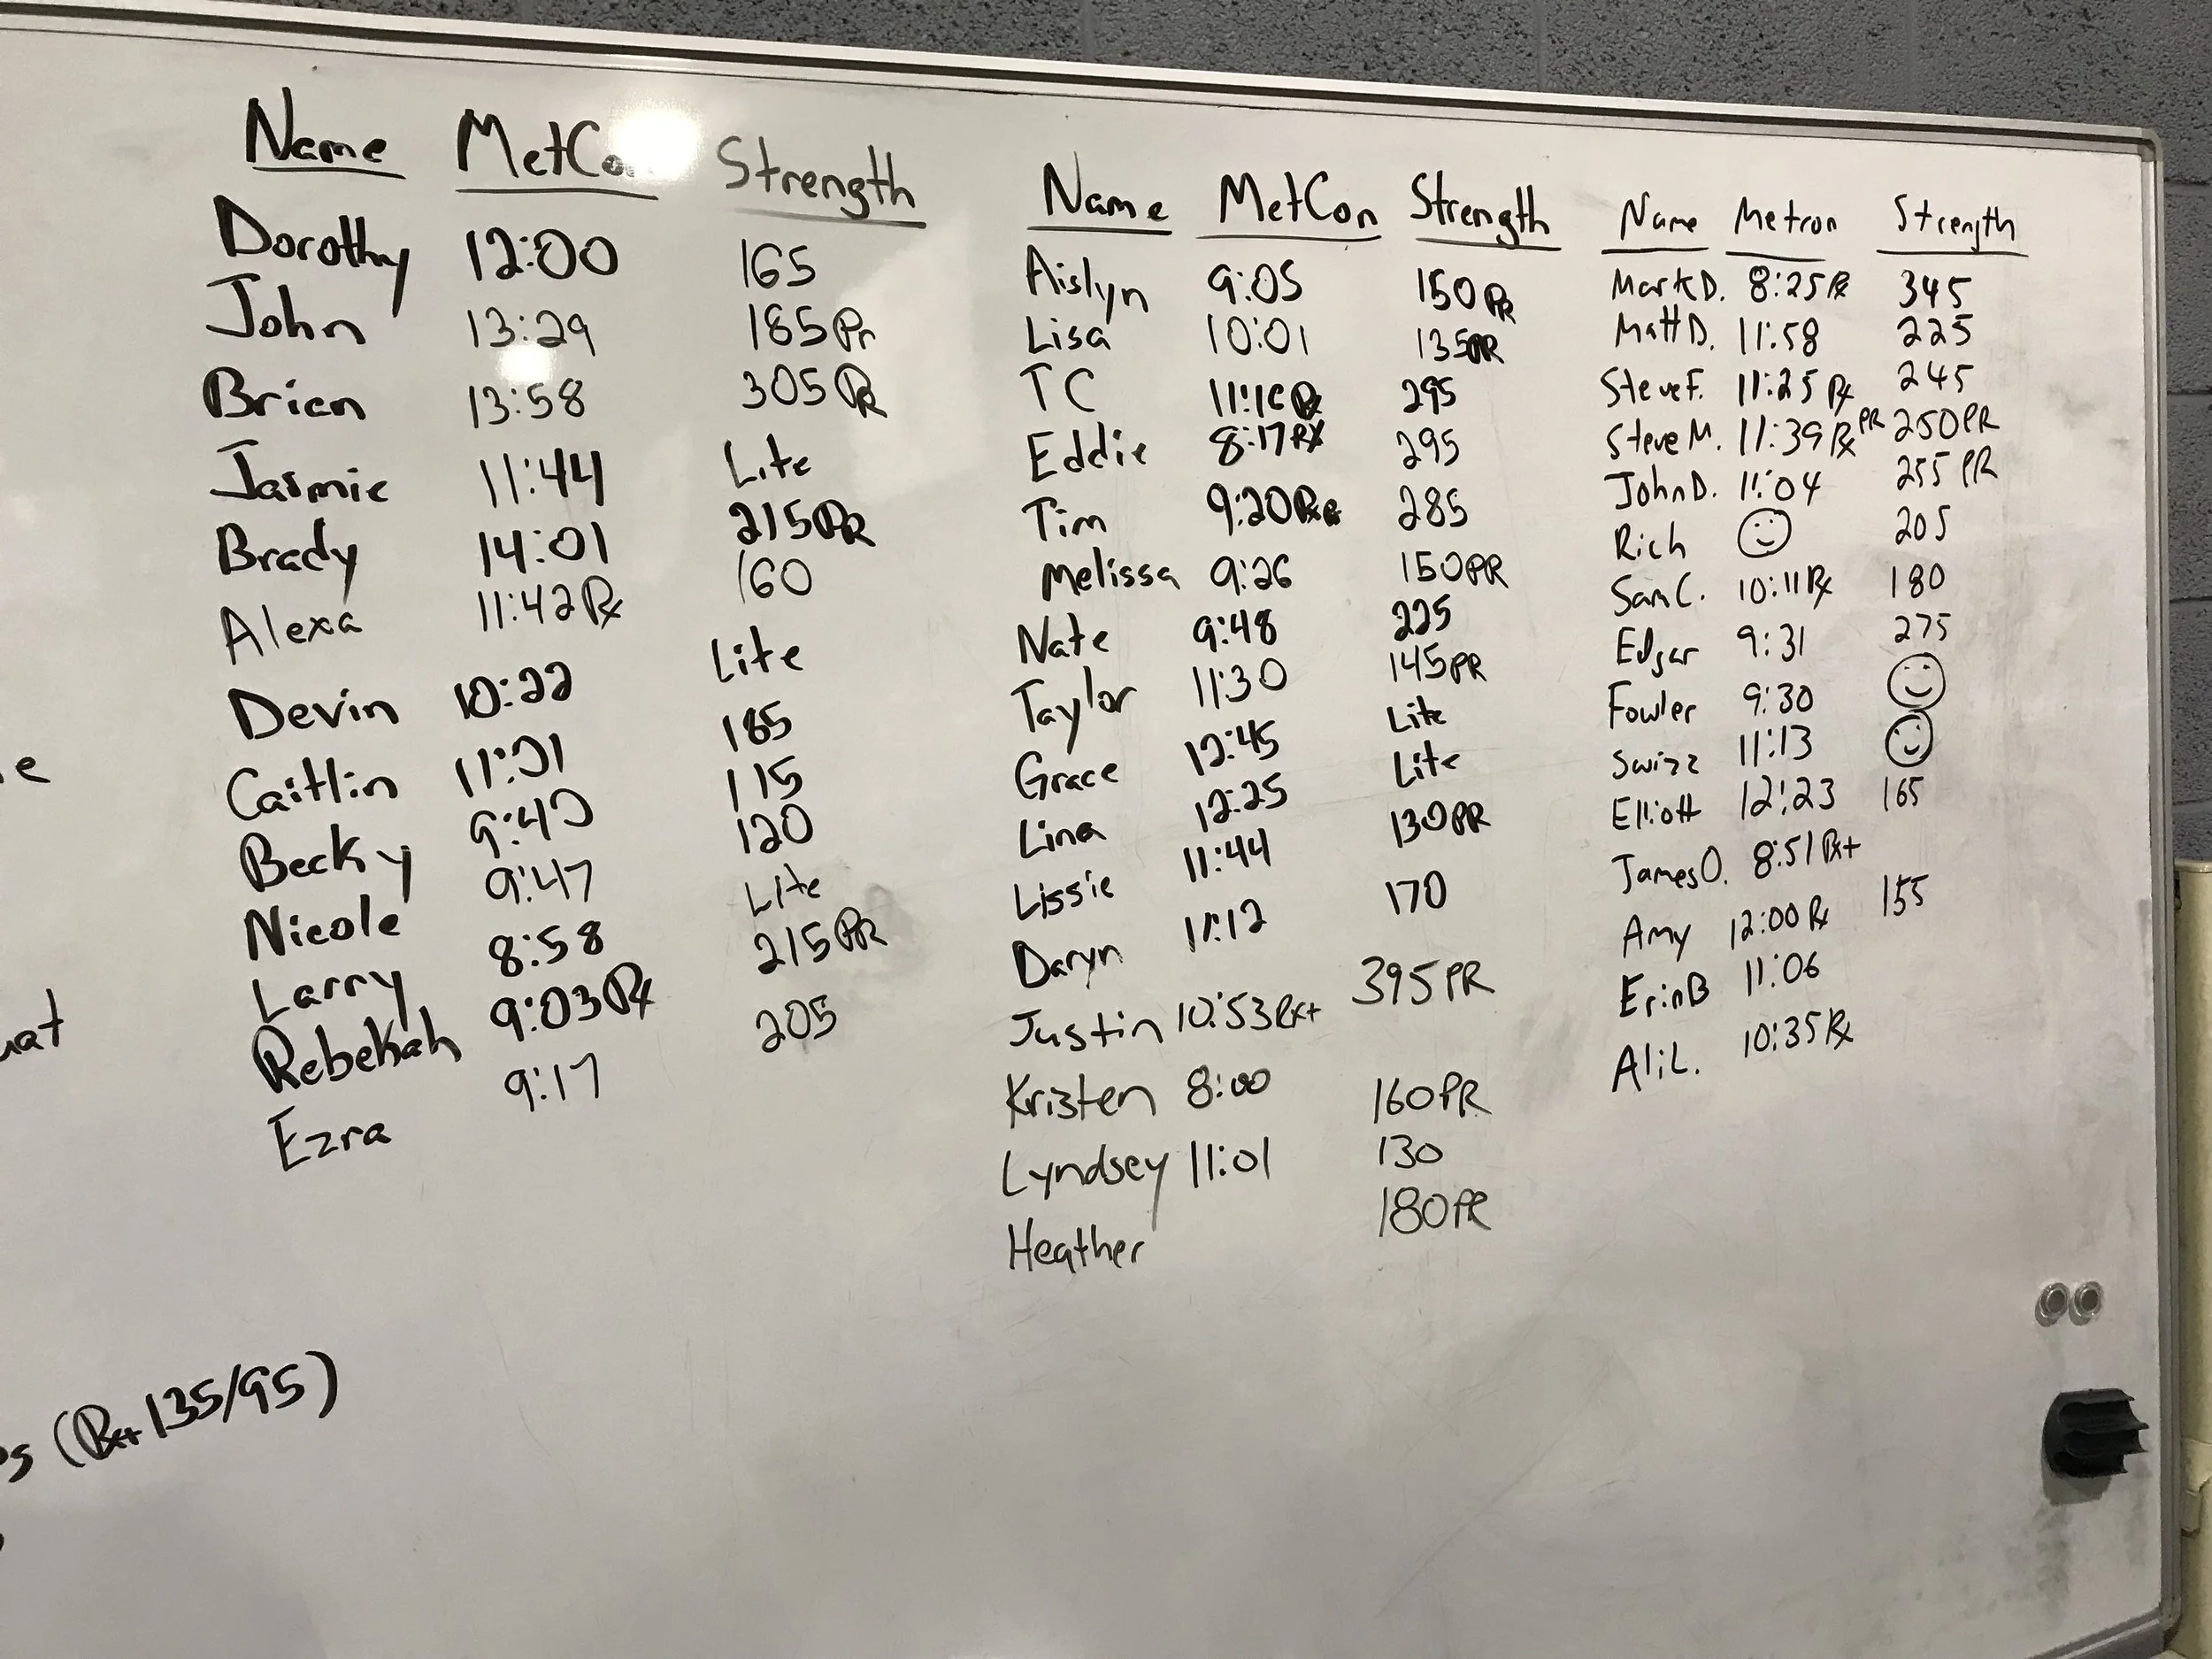 Name MetCon Strength
Dorothy 12:00 165
John 13:29 185Pr
Brian 13:58 305PR
Jasmie 11:44 Lite
Brady 14:01 215PR
Alexa 11:42Rx 160
Devin 10:22 Lite
Caitlin 11:01 185
Becky 9:40 115
Nicole 9:47 120
Larry 8:58 Lite
Rebekah 9:03Rx 215PR
Ezra 9:17 205
(Rx+ 135/95)
Name MetCon Strength
Aislyn 9:05 150PR
Lisa 10:01 135PR
TC 11:16Rx 295
Eddie 8:17RX 295
Tim 9:20Rx 285
Melissa 9:26 150PR
Nate 9:48 225
Taylor 11:30 145PR
Grace 12:45 Lite
Lina 12:25 Lite
Lissie 11:44 130PR
Daryn 11:12 170
Justin 10:53Rx+ 395PR
Kristen 8:00 160PR
Lyndsey 11:01 130
Heather 180PR
Name Metcon Strength
Mark D. 8:25Rx 345
Matt D. 11:58 225
Steve F. 11:25Rx 245
Steve M. 11:39Rx PR 250PR
John D. 11:04 255 PR
Rich 205
Sam C. 10:11Rx 180
Edgar 9:31 275
Fowler 9:30
Swizz 11:13
Elliott 12:23 165
James O. 8:51Rx+
Amy 12:00Rx 155
Erin B 11:06
Ali L. 10:35Rx